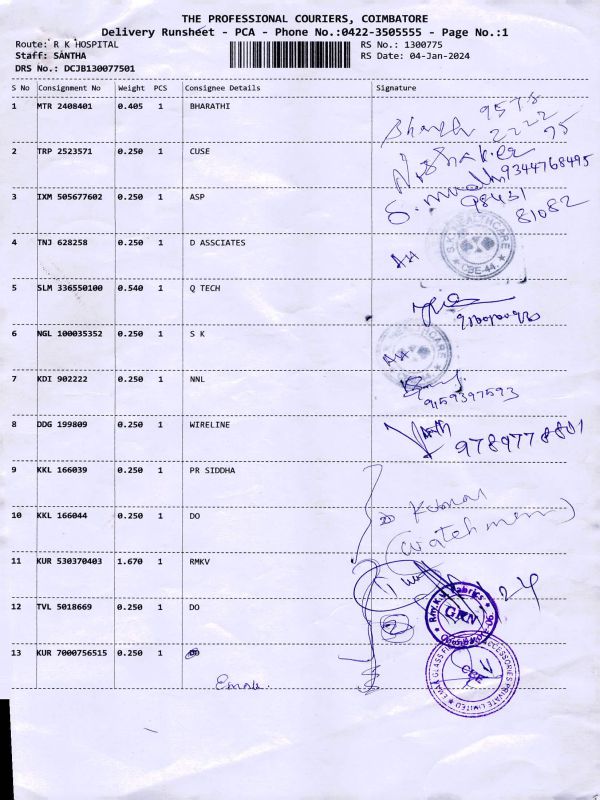 THE PROFESSIONAL COURIERS, COIMBATORE
Delivery Runsheet - PCA - Phone No.:0422-3505555 - Page No.:1
Route: R K HOSPITAL RS No.: 1300775
Staff: SANTHA RS Date: 04-Jan-2024
DRS No.: DCJB130077501
S No Consignment No Weight PCS Consignee Details Signature
1 MTR 2408401 0.405 1 BHARATHI
Bharath 9578
2222
75
2 TRP 2523571 0.250 1 CUSE
9344768495
3 IXM 505677602 0.250 1 ASP
98431
81082
4 TNJ 628258 0.250 1 D ASSCIATES
HEALTHCARE
CBE-44.
5 SLM 336550100 0.540 1 Q TECH
6 NGL 100035352 0.250 1 S K
7 KDI 902222 0.250 1 NNL
9159397593
8 DDG 199809 0.250 1 WIRELINE
9789778801
9 KKL 166039 0.250 1 PR SIDDHA
10 KKL 166044 0.250 1 DO
Kumar
(watch men)
11 KUR 530370403 1.670 1 RMKV
12 TVL 5018669 0.250 1 DO
2
Fabrics
GRN
13 KUR 7000756515 0.250 1
ACCESSORIES PRIVATE LIMITED
CBE